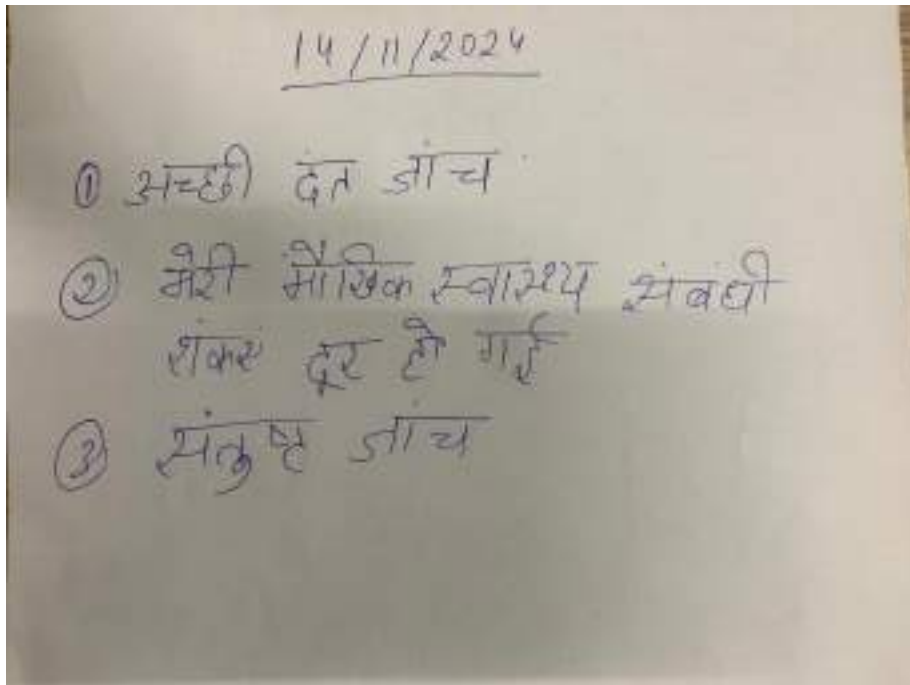 14/11/2024
① अच्छी दंत जांच
② मेरी मौखिक स्वास्थ्य संबंधी
दूर हो गई
③ संतुष्ट जांच